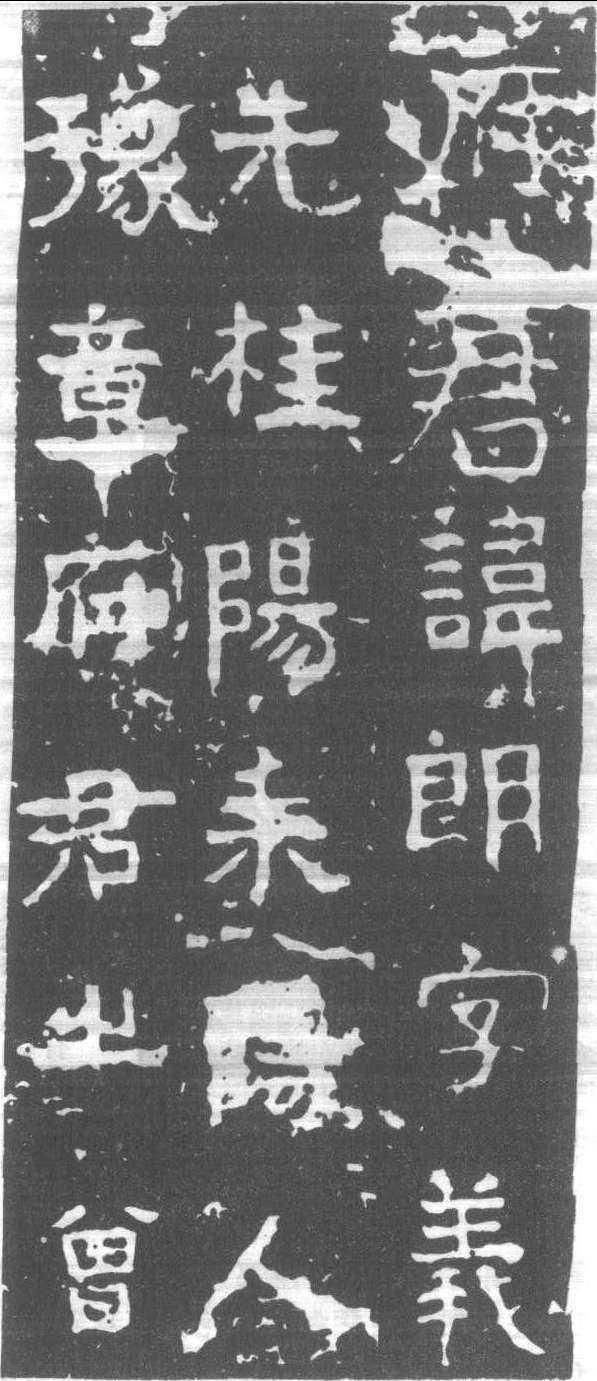 府君諱朗字義
先桂陽耒陽人
豫章府君之曾